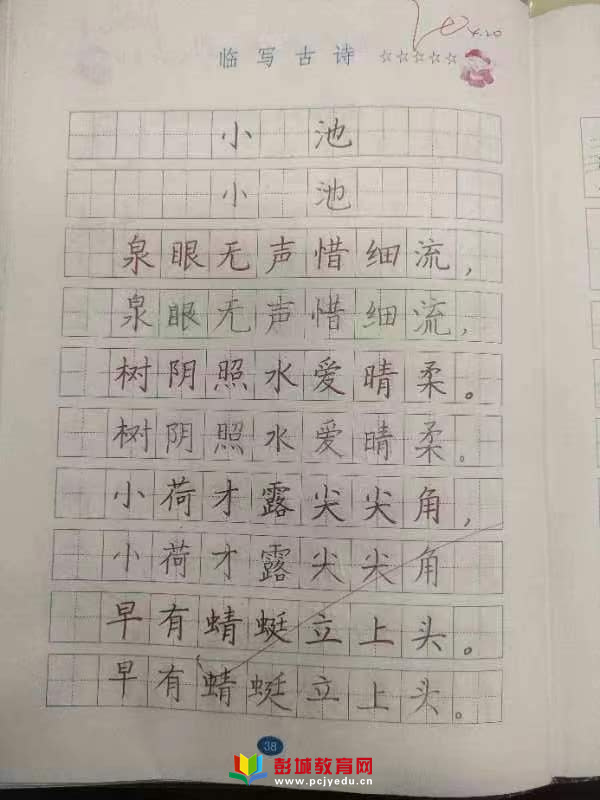 4.20
临写古诗 ☆☆☆☆☆
小池
小池
泉眼无声惜细流，
泉眼无声惜细流，
树阴照水爱晴柔。
树阴照水爱晴柔。
小荷才露尖尖角，
小荷才露尖尖角
早有蜻蜓立上头。
早有蜻蜓立上头。
38
彭城教育网
www.pcjyedu.com